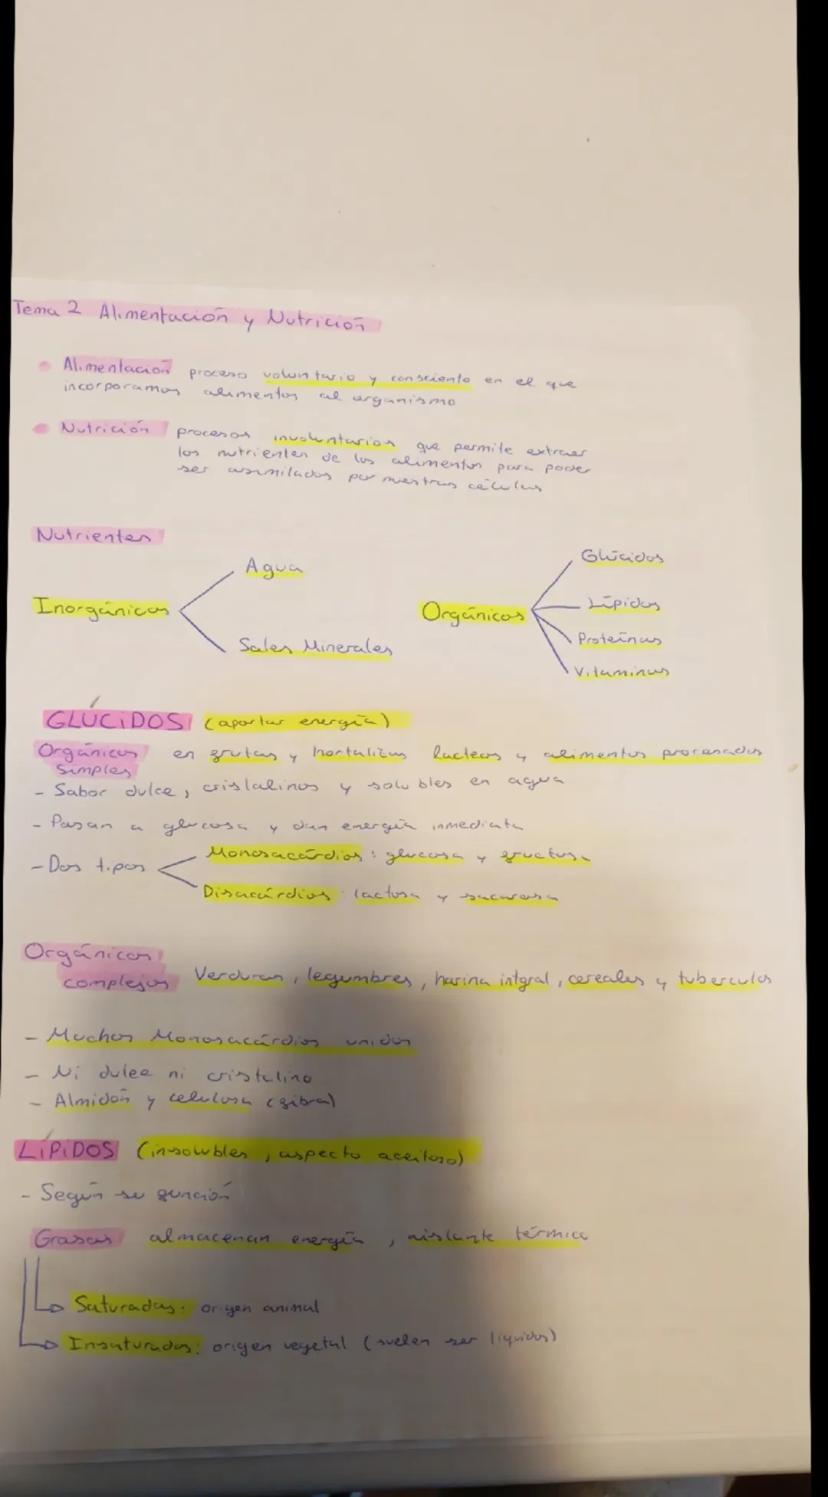 Tema 2 Alimentación y Nutrición
Alimentación proceso voluntario y consciente en el que
incorporamos alimentos al organismo
Nutrición procesos involuntarios que permite extraer
los nutrientes de los alimentos para poder
ser asimilados por nuestras células
Nutrientes
Inorgánicos
Agua
Sales Minerales
Orgánicos
Glúcidos
Lípidos
Proteínas
Vitaminas
GLÚCIDOS (aportar energía)
Orgánicos simples en frutas y hortalizas lacteos y alimentos procesados
- Sabor dulce, cristalinos y solubles en agua
- Pasan a glucosa y dan energía inmediata
- Dos tipos
Monosacárdios: glucosa y fructosa
Disacárdios: lactosa y sacarosa
Orgánicos
complejos Verduras, legumbres, harina intgral, cereales y tuberculos
- Muchos Monosacárdios unidos
- Ni dulce ni cristalino
- Almidón y celulosa (fibra)
LÍPIDOS (insolubles, aspecto aceitoso)
- Según su función
Grasas almacenan energía, aislante térmico
Saturadas: origen animal
Insaturadas: origen vegetal (suelen ser líquidos)